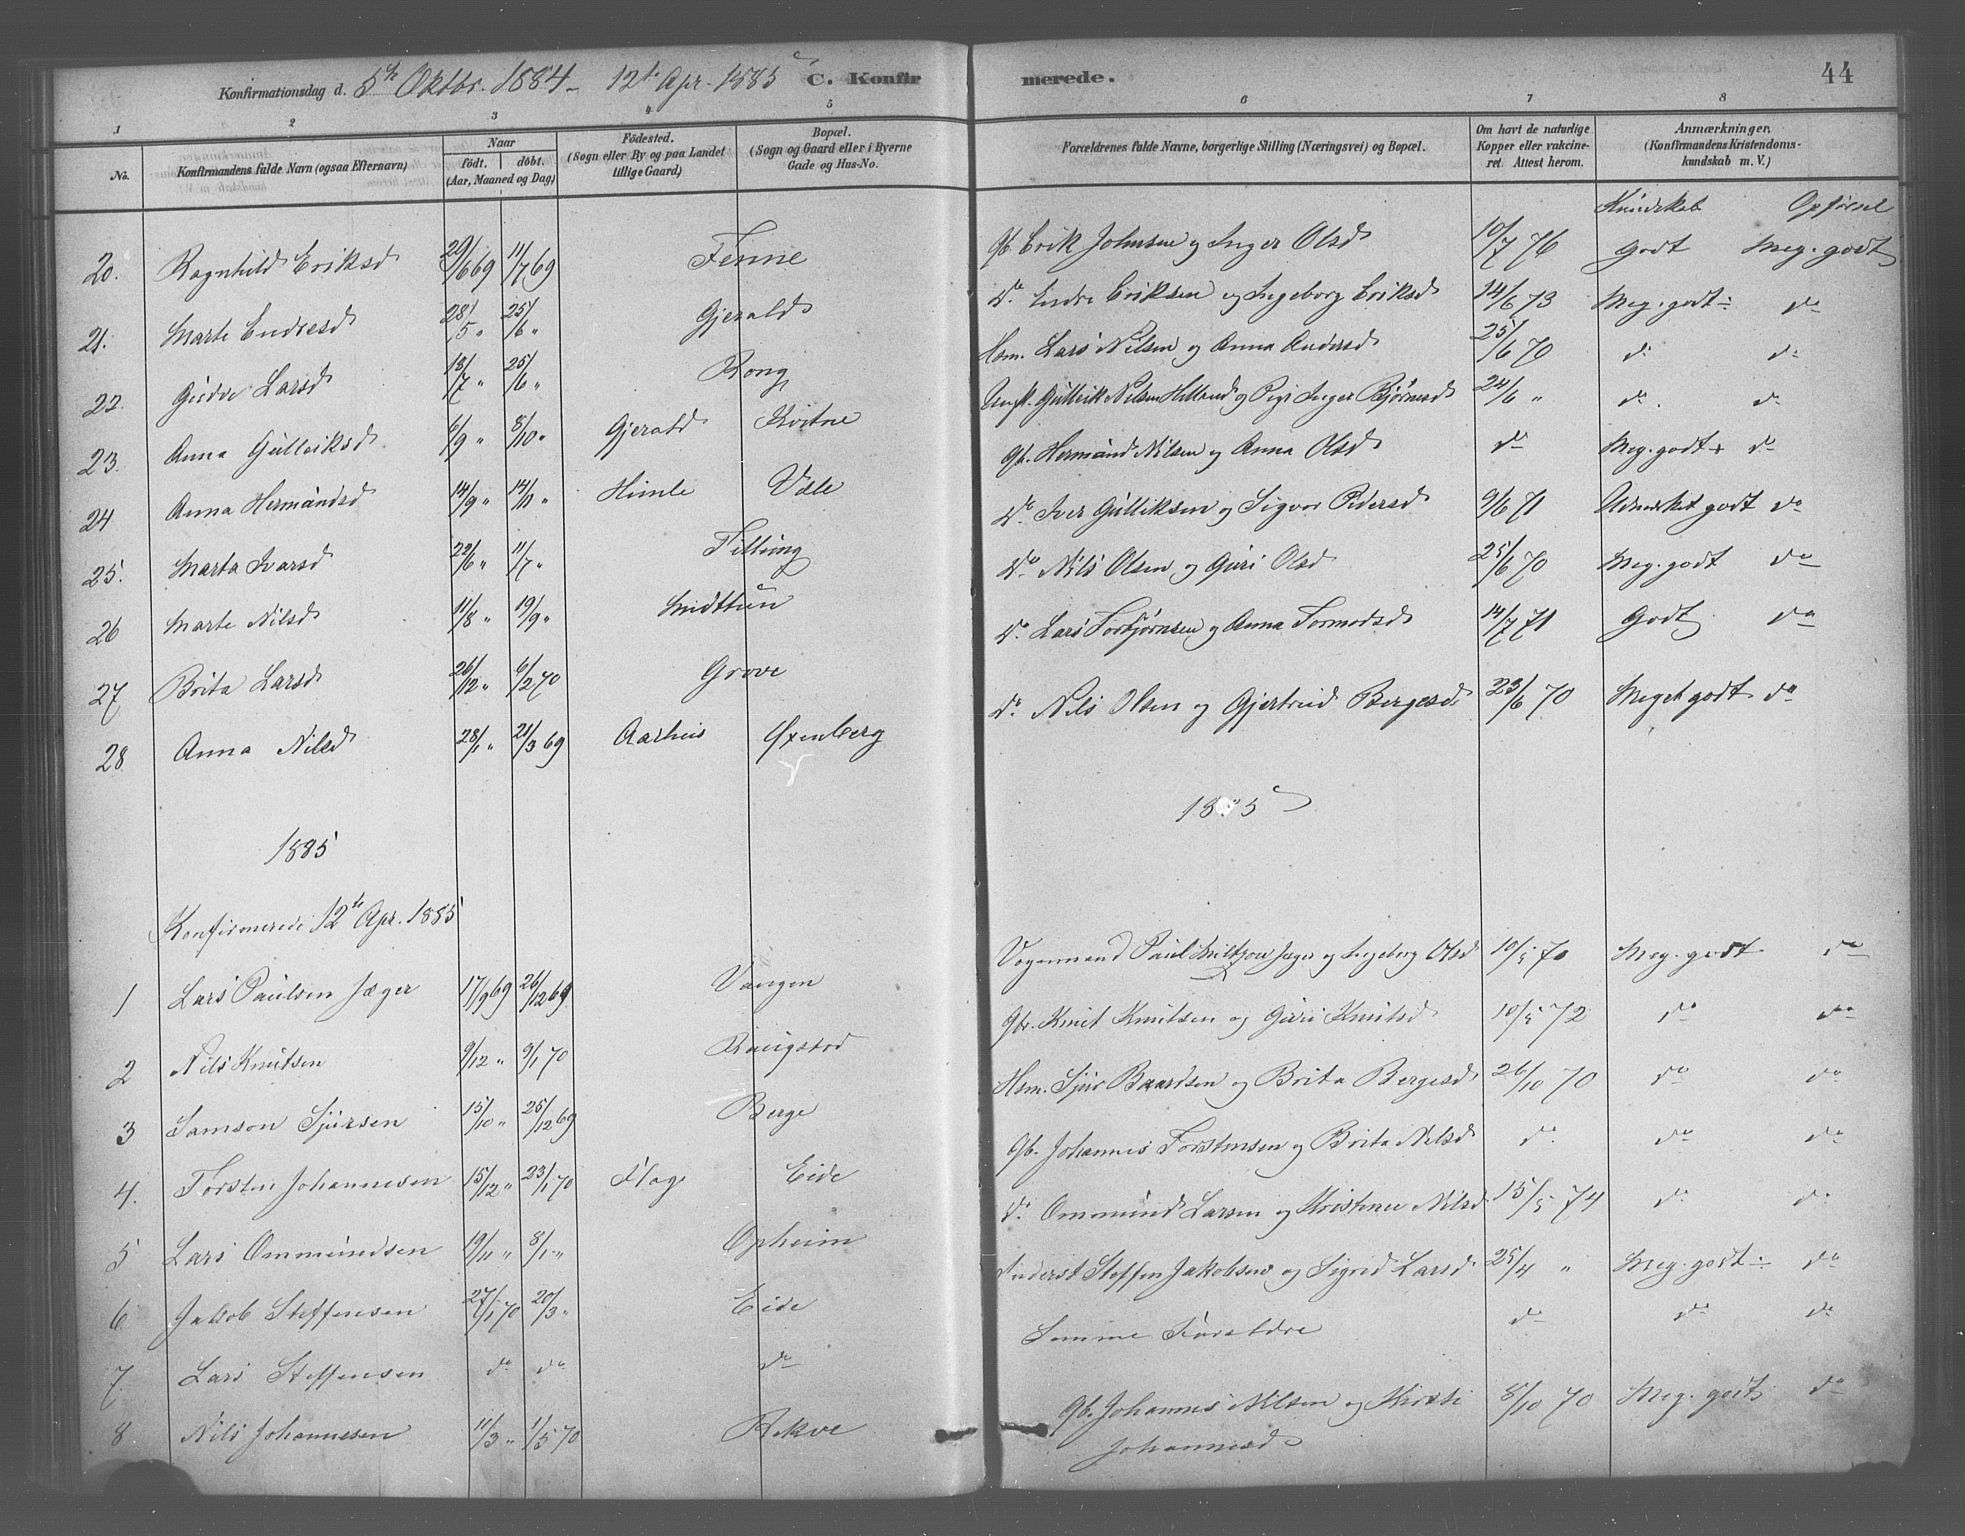 Konfirmationsdag d. 5te Oktbr. 1884 - 12te Apr. 1885 C. Konfirmerede. 44
1 2 3 4 5 6 7 8
No. Konfirmandens fulde Navn (ogsaa Efternavn) Naar födt. döbt. (Aar, Maaned og Dag) Födested. (Sogn eller By og paa Landet tillige Gaard) Bopæl. (Sogn og Gaard eller i Byerne Gade og Hus-No. Forældrenes fulde Navne, borgerlige Stilling (Næringsvei) og Bopæl. Om havt de naturlige Kopper eller vakcineret Attest herom. Anmærkninger. (Konfirmandens Kristendomskundskab m. V.)
Kundskab Opførsel
20. Ragnhild Eriksd 29/6 69 11/7 69 Fenne Gb. Erik Johnsen og Inger Olsd 10/7 76 Godt Meg. godt
21. Marte Endresd 28/5 " 25/6 " Gjerald Do Endre Eriksen og Ingeborg Eriksd 14/6 73 Meg. godt ÷ do
22. Gudve Larsd 18/7 " 25/6 " Rong Hsm. Lars Nilsen og Anna Andersd 25/6 70 do do
23. Anna Gulleiksd 6/9 " 8/10 " Gjerald Kvitne Gulleik Nilsen Helland og Pige Inger Bjørnesd 24/6 " do. do
24 Anna Hermundsd 14/9 " 14/11 " Himle Væle Gb. Hermund Nilsen og Anna Olsd do Meg. godt + do
25. Marta Ivarsd 22/6 " 11/7 " Tillung Do. Iver Gulliksen og Sigvor Pedersd 9/6 71 Udmerket godt do
26 Marte Nilsd 11/8 " 19/9 " Midttun Do. Nils Olsen og Guri Olsd 25/6 70 Meg. godt do
27 Brita Larsd 26/12 " 6/2 70 Grove Do. Lars Torbjørnsen og Anna Tormodsd 14/7 71 Godt do
28 Anna Nilsd 28/1 " 21/3 69 Aarhus Øxenberg Do. Nils Olsen og Gjertrud Bergesd 23/6 70 Meget godt do
1885 1885
Konfirmerede 12te Apr. 1885
1 Lars Paulsen Jæger 17/9 69 26/12 69 Vangen Vognmand Paul Jæger og Ingeborg Olsd 10/5 70 Meg. godt do
2 Nils Knutsen 9/12 " 9/1 70 Ringstad Gbr. Knut Knutsen og Guri Knutsd 10/5 72 do do
3 Samson Sjursen 15/10 " 25/12 69 Berge Hsm. Sjur Baardsen og Brita Bergesd 26/10 70 do do
4. Torsten Johannesen 15/12 " 23/1 70 Flage Eide Gb. Johannes Torstensen og Brita Nilsd do do do
5 Lars Ommundsen 19/11 " 8/1 " Opheim do Ommund Larsen og Kristense Nilsd 15/5 74 do do
6 Jakob Steffensen 27/1 70 20/3 " Eide Inderst Steffen Jakobsen og Sigrid Larsd 25/4 " Meg. godt ÷ do
7 Lars Steffensen do do do Samme Forældre do do do
8 Nils Johannesen 11/3 " 1/5 70 Rekve Gb. Johannes Nilsen og Kirsti 8/10 70 Meg. godt do
Johannesd